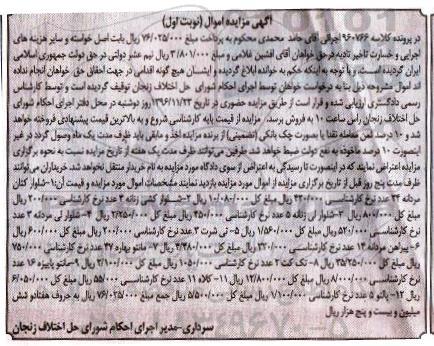 آگهی مزایده اموال (نوبت اول)
در پرونده کلاسه ۹۶۰۷۶۶ اجرائی آقای حامد محمدی محکوم به پرداخت مبلغ ۷۶/۰۲۵/۰۰۰ ریال بابت اصل خواسته و سایر هزینه های
اجرایی و خسارت تاخیر تادیه در حق خواهان آقای افشین غلامی و مبلغ ۳/۸۰۱/۰۰۰ ریال نیم عشر دولتی در حق دولت جمهوری اسلامی
ایران گردیده است. و با توجه به اینکه حکم به خوانده ابلاغ گردیده و ایشان هیچ گونه اقدامی در جهت احقاق حق خواهان انجام نداده
اند اموال مشروحه ذیل بنا به درخواست خواهان توسط اجرای احکام شورای حل اختلاف زنجان توقیف گردیده است و توسط کارشناس
رسمی دادگستری ارزیابی شده و قرار است از طریق مزایده حضوری در تاریخ ۱۳۹۶/۱۱/۲۳ روز دوشنبه در محل دفتر اجرای احکام شورای
حل اختلاف زنجان راس ساعت ۱۰ به فروش برسد. مزایده از قیمت پایه کارشناسی شروع و به بالاترین قیمت پیشنهادی فروخته خواهد
شد و ۱۰ درصد ثمن معامله نقدا یا بصورت چک بانکی (تضمینی) از برنده مزایده اخذ و مابقی باید ظرف مدت یک ماه وصول گردد در غیر
اینصورت ۱۰ درصد ماخوذه به نفع دولت ضبط خواهد شد. طرفین می‌توانند ظرف مدت یک هفته از تاریخ مزایده نسبت به نحوه برگزاری
مزایده اعتراض نمایند که در اینصورت تا رسیدگی به اعتراض از سوی دادگاه مورد مزایده به نام خریدار منتقل نخواهد شد. خریداران می‌توانند
ظرف مدت پنج روز قبل از تاریخ برگزاری مزایده از اموال مورد مزایده بازدید نمایند مشخصات اموال مورد مزایده و قیمت آن: ۱- شلوار کتان
مردانه ۲۴ عدد نرخ کارشناسی ۴۲۰/۰۰۰ ریال مبلغ کل ۱۰/۰۸۰/۰۰۰ ریال ۲- شلوار کشی زنانه ۴ عدد نرخ کارشناسی ۲۰۰/۰۰۰ ریال
مبلغ کل ۸۰۰/۰۰۰ ریال ۳- شلوار لی زنانه ۵ عدد نرخ کارشناسی ۴۵۰/۰۰۰ ریال مبلغ کل ۲/۲۵۰/۰۰۰ ریال ۴- شلوار لی مردانه ۳ عدد
نرخ کارشناسی ۵۲۰/۰۰۰ ریال مبلغ کل ۱/۵۶۰/۰۰۰ ریال ۵- تی شرت ۳ عدد نرخ کارشناسی ۲۰۰/۰۰۰ ریال مبلغ کل ۶۰۰/۰۰۰ ریال
۶- پیراهن مردانه ۱۴ عدد نرخ کارشناسی ۳۲۰/۰۰۰ ریال مبلغ کل ۴/۴۸۰/۰۰۰ ریال ۷- مانتو بهاره ۴۷ عدد نرخ کارشناسی ۷۵۰/۰۰۰
ریال مبلغ کل ۳۵/۲۵۰/۰۰۰ ریال ۸- تک کت ۲ عدد نرخ کارشناسی ۱/۰۵۰/۰۰۰ ریال مبلغ کل ۲/۱۰۰/۰۰۰ ریال ۹- مانتو پاییزه ۱۶ عدد
نرخ کارشناسی ۸۰۰/۰۰۰ ریال مبلغ کل ۱۲/۸۰۰/۰۰۰ ریال ۱۱- کلاه ۱۱ عدد نرخ کارشناسی ۵۵/۰۰۰ ریال مبلغ کل ۶۰۵/۰۰۰
ریال ۱۲- پالتو ۵ عدد نرخ کارشناسی ۱/۱۰۰/۰۰۰ ریال مبلغ کل ۵/۵۰۰/۰۰۰ ریال جمع مبلغ ۷۶/۰۲۵/۰۰۰ ریال به حروف هفتاد و شش
میلیون و بیست و پنج هزار ریال
سرداری- مدیر اجرای احکام شورای حل اختلاف زنجان